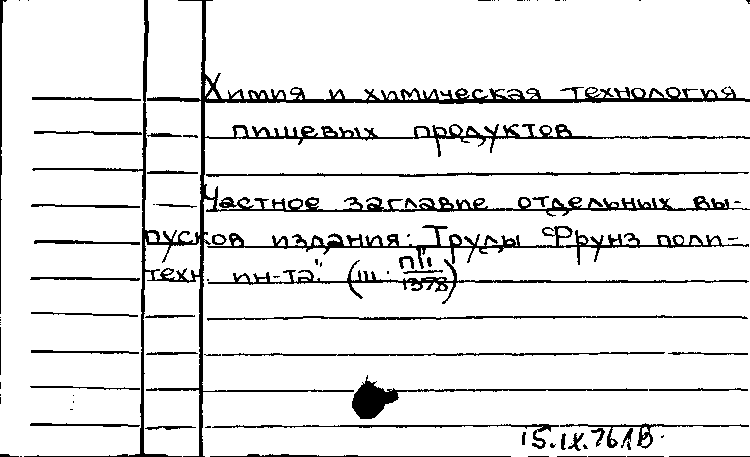 Химия и химическая технология
пищевых продуктов
Частное заглавие отдельных вы-
пусков издания: "Труды Фрунз поли-
техн. ин-та." (Ш. П11/1378)
15.IX.76